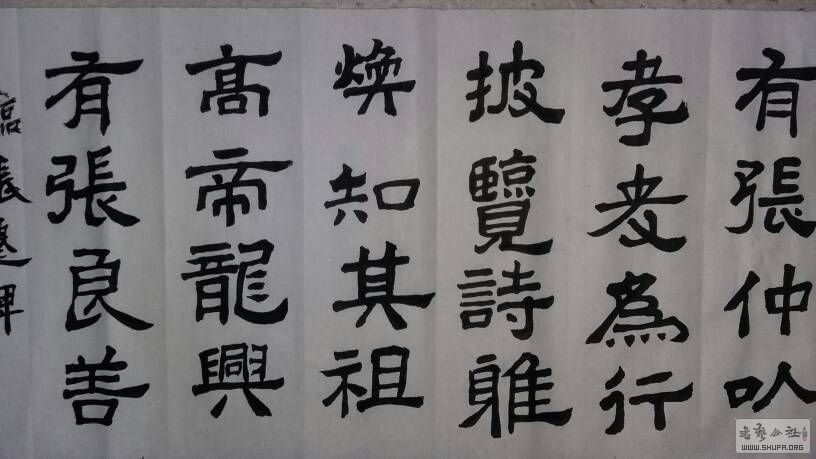 有張仲以
孝友為行
披覽詩雅
煥知其祖
高帝龍興
有張良善
臨張遷碑
書藝公社
WWW.SHUFA.ORG